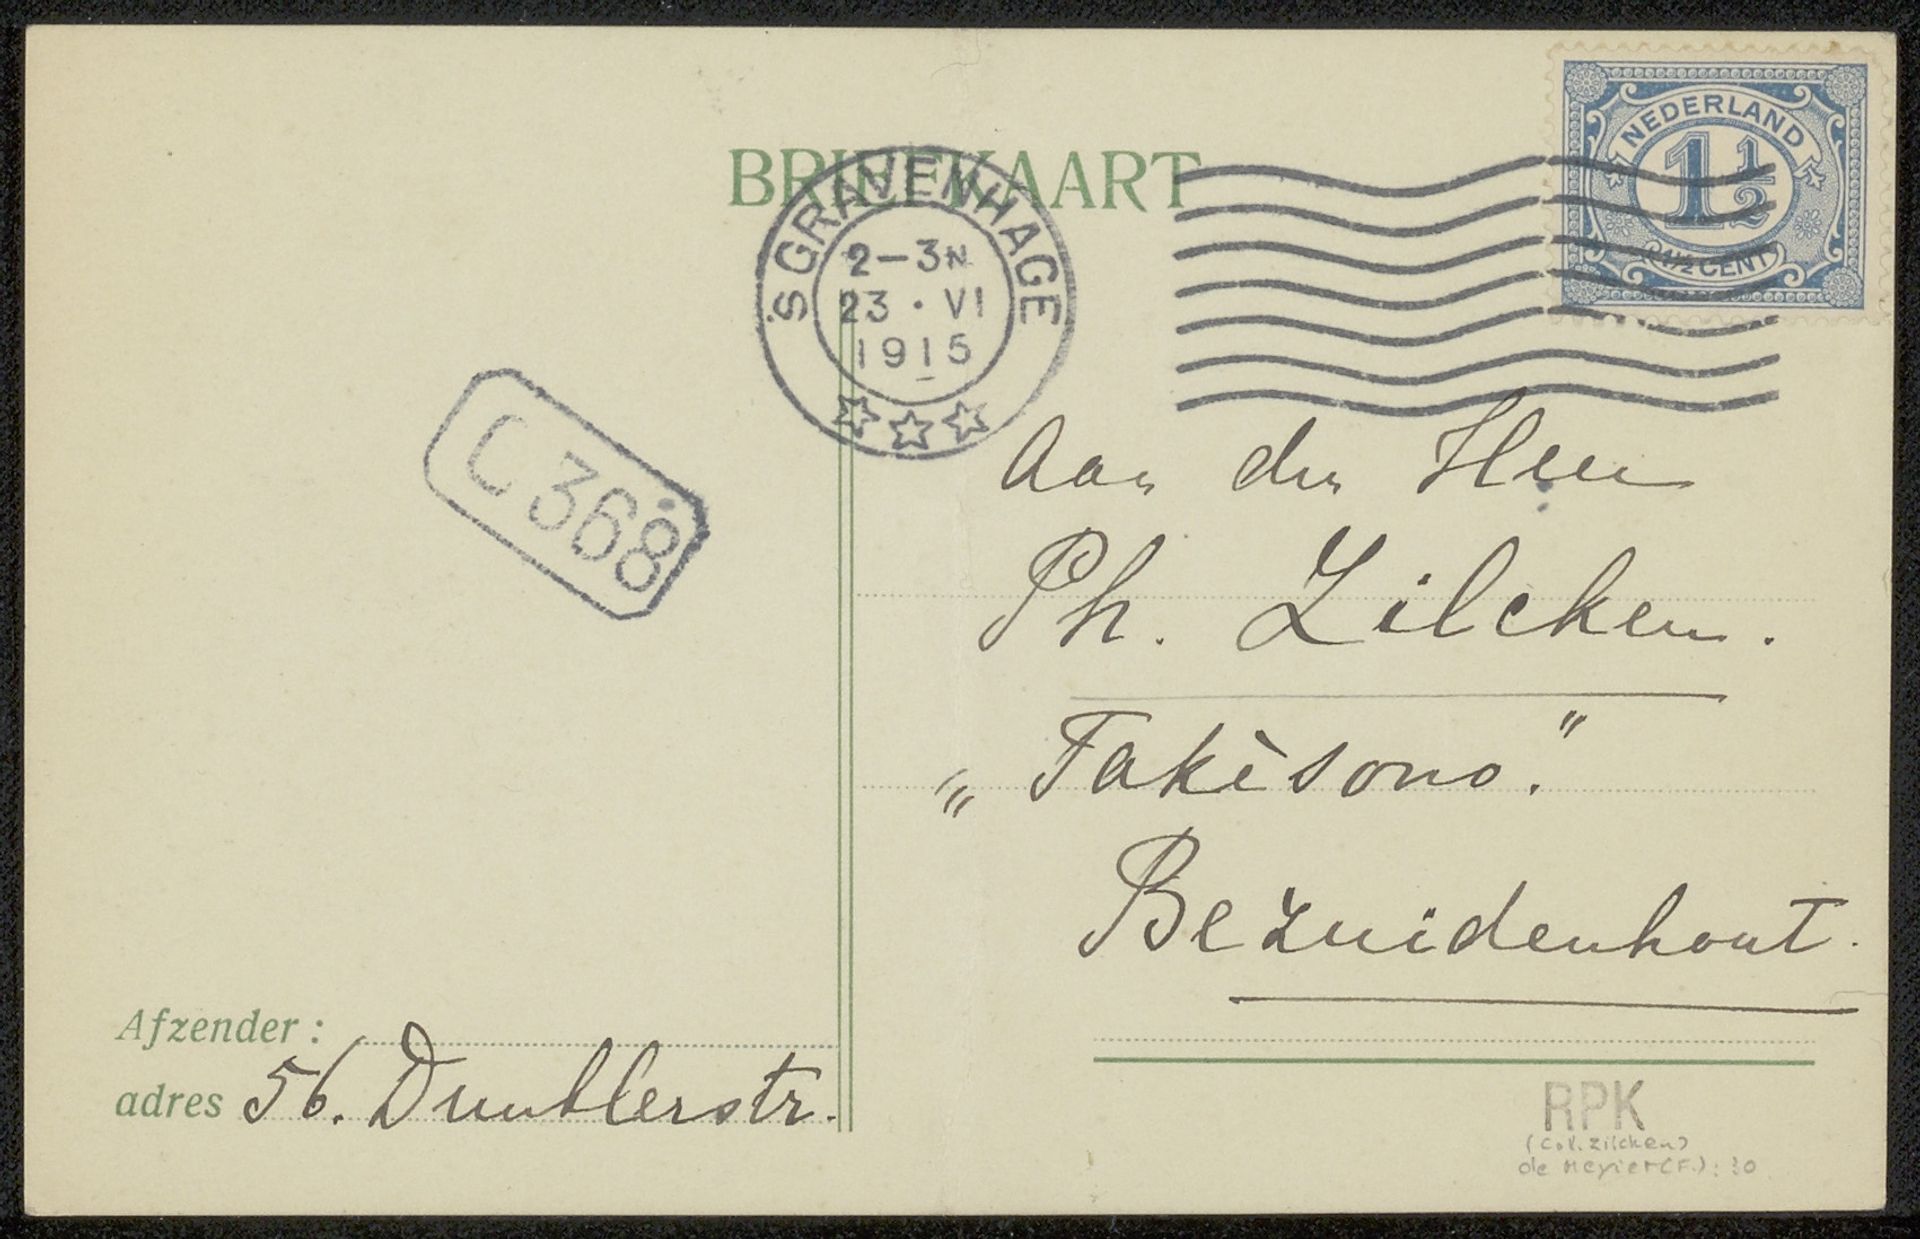 BRIEFKAART
'S GRAVENHAGE
2-3N
23 · VI
1915
NEDERLAND
1 1/2
1 1/2 CENT
C 368
Aan den Heer
Ph. Zilcken.
„Takèsono."
Bezuidenhout.
Afzender:
adres 56.
RPK
(Col. Zilcken)
de Meyier (F.): 30